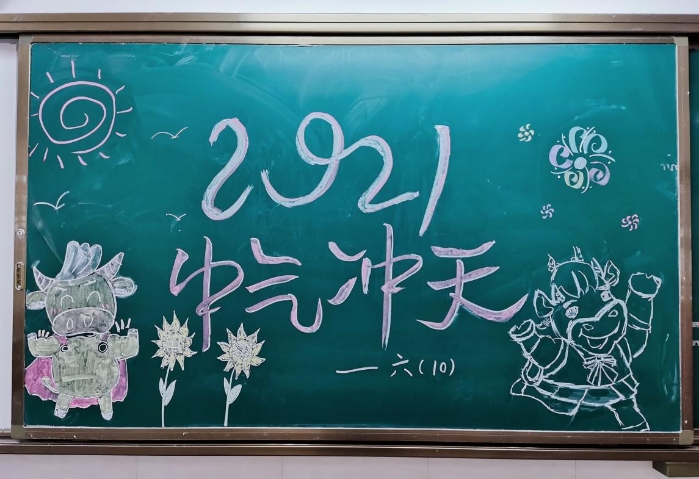 2021
牛气冲天
—六(10)